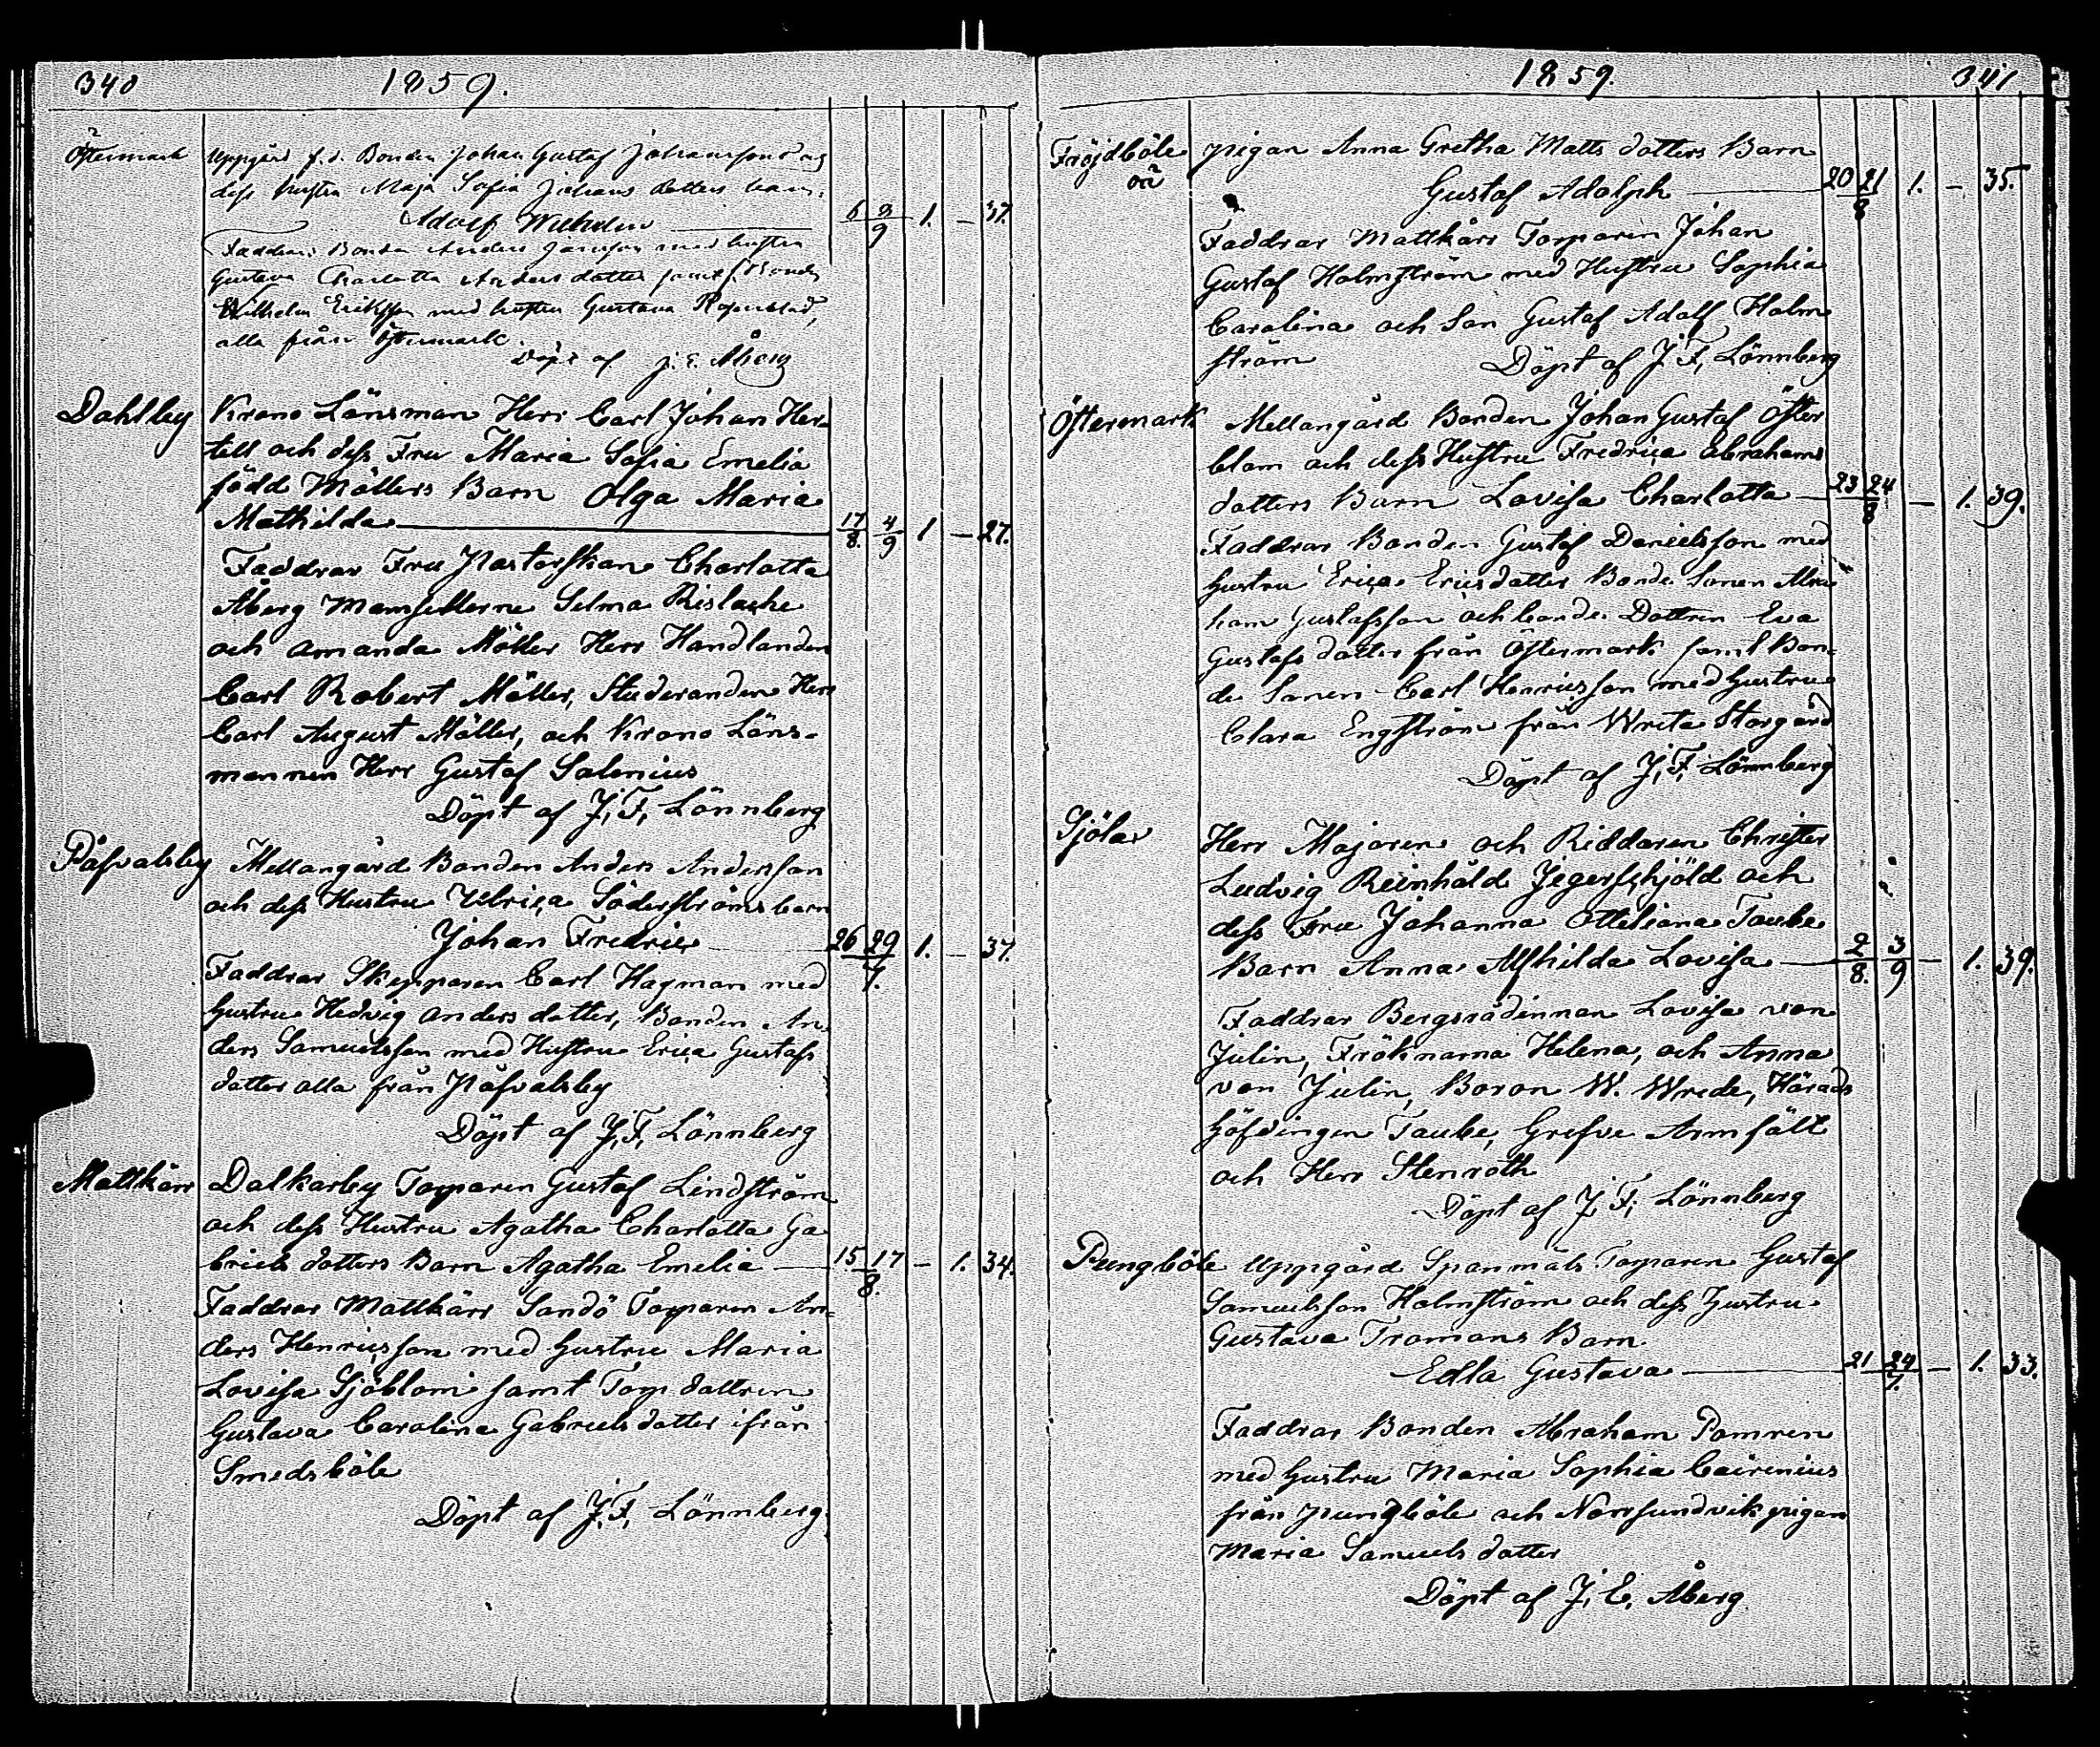 340 1859.
Östermark Uppgård f.d. Bonden Johan Gustaf Johanssons och
dess hustru Maja Sofia Johans dotters barn
Adolf Wilhelm 6 8/9 1. – 37.
Faddrar: Bonden Anders Jansson med hustru
Gustava Charlotta Anders dotter samt f. Bonden
Wilhelm Eriksson med hustru Gustava Rosenblad,
alla från Östermark.
Döpt af J. E. Åberg
Dahlby Krono Länsman Herr Carl Johan Her-
tell och dess Fru Maria Sofia Emelia
född Möllers Barn Olga Maria
Mathilda 17/8. 4/9 1 – 27.
Faddrar Fru Pastorskan Charlotta
Åberg Mamsellerne Selma Rislache
och Amanda Möller Herr Handlanden
Carl Robert Möller, Studeranden Herr
Carl August Möller, och Krono Läns-
mannen Herr Gustaf Salenius
Döpt af J. F. Lönnberg
Påfvalsby Mellangård Bonden Anders Andersson
och dess Hustru Ulrica Söderströms barn
Johan Fredric 26 29/7. 1. – 37.
Faddrar Skepparen Carl Hagman med
hustru Hedvig Anders dotter, Bonden An-
ders Samuelsson med Hustru Erica Gustafs
dotter alla från Påfvalsby
Döpt af J. F. Lönnberg
Mattkärr Dalkarby Torparen Gustaf Lindström
och dess Hustru Agatha Charlotta Ga
briels dotters Barn Agatha Emelia 15 17/8. – 1. 34.
Faddrar Mattkärr Sandö Torparen An-
ders Henricsson med hustru Maria
Lovisa Sjöblom samt Torp dottren
Gustava Carolina Gabriels dotter ifrån
Smedsböle
Döpt af J. F. Lönnberg
1859. 341
Fröjdböle pigan Anna Gretha Matts dotters Barn
Gustaf Adolph 20 21/8 1. – 35.
Faddrar Mattkärr Torparen Johan
Gustaf Holmström med Hustru Sophia
Carolina och Son Gustaf Adolf Holm
ström Döpt af J. F. Lönnberg
Östermark Mellangård Bonden Johan Gustaf Öster
blom och dess Hustru Fredrica Abrahams
dotters Barn Lovisa Charlotta 23 24/8 – 1. 39.
Faddrar Bonden Gustaf Danielsson med
hustru Erica Ericsdotter Bonde Sonen Abra
ham Gustafsson och bonde Dottren Eva
Gustafs dotter från Östermark samt Bon-
de Sonen Carl Henricsson med hustru
Clara Engström från Wreta Storgård
Döpt af J. F. Lönnberg
Sjölax Herr Majoren och Riddaren Christer
Ludvig Reinhold Jegerschjöld och
dess Fru Johanna Ottiliana Taube
Barn Anna Alfhilda Lovisa 2/8. 3/9 – 1. 39.
Faddrar Bergsrådinnan Lovisa von
Julin, Fröknarna Helena, och Anna
von Julin, Baron W. Wrede, Härads
höfdingen Taube, Grefve Armfält
och Herr Stenroth
Döpt af J. F. Lönnberg
Pungböle Uppgård Spanmåls Torparen Gustaf
Samuelsson Holmström och dess hustru
Gustava Tromans Barn
Edla Gustava 21 24/7. – 1. 33.
Faddrar Bonden Abraham Pomren
med hustru Maria Sophia Cairenius
från Pungböle och Norrsundvik pigan
Maria Samuels dotter
Döpt af J. E. Åberg